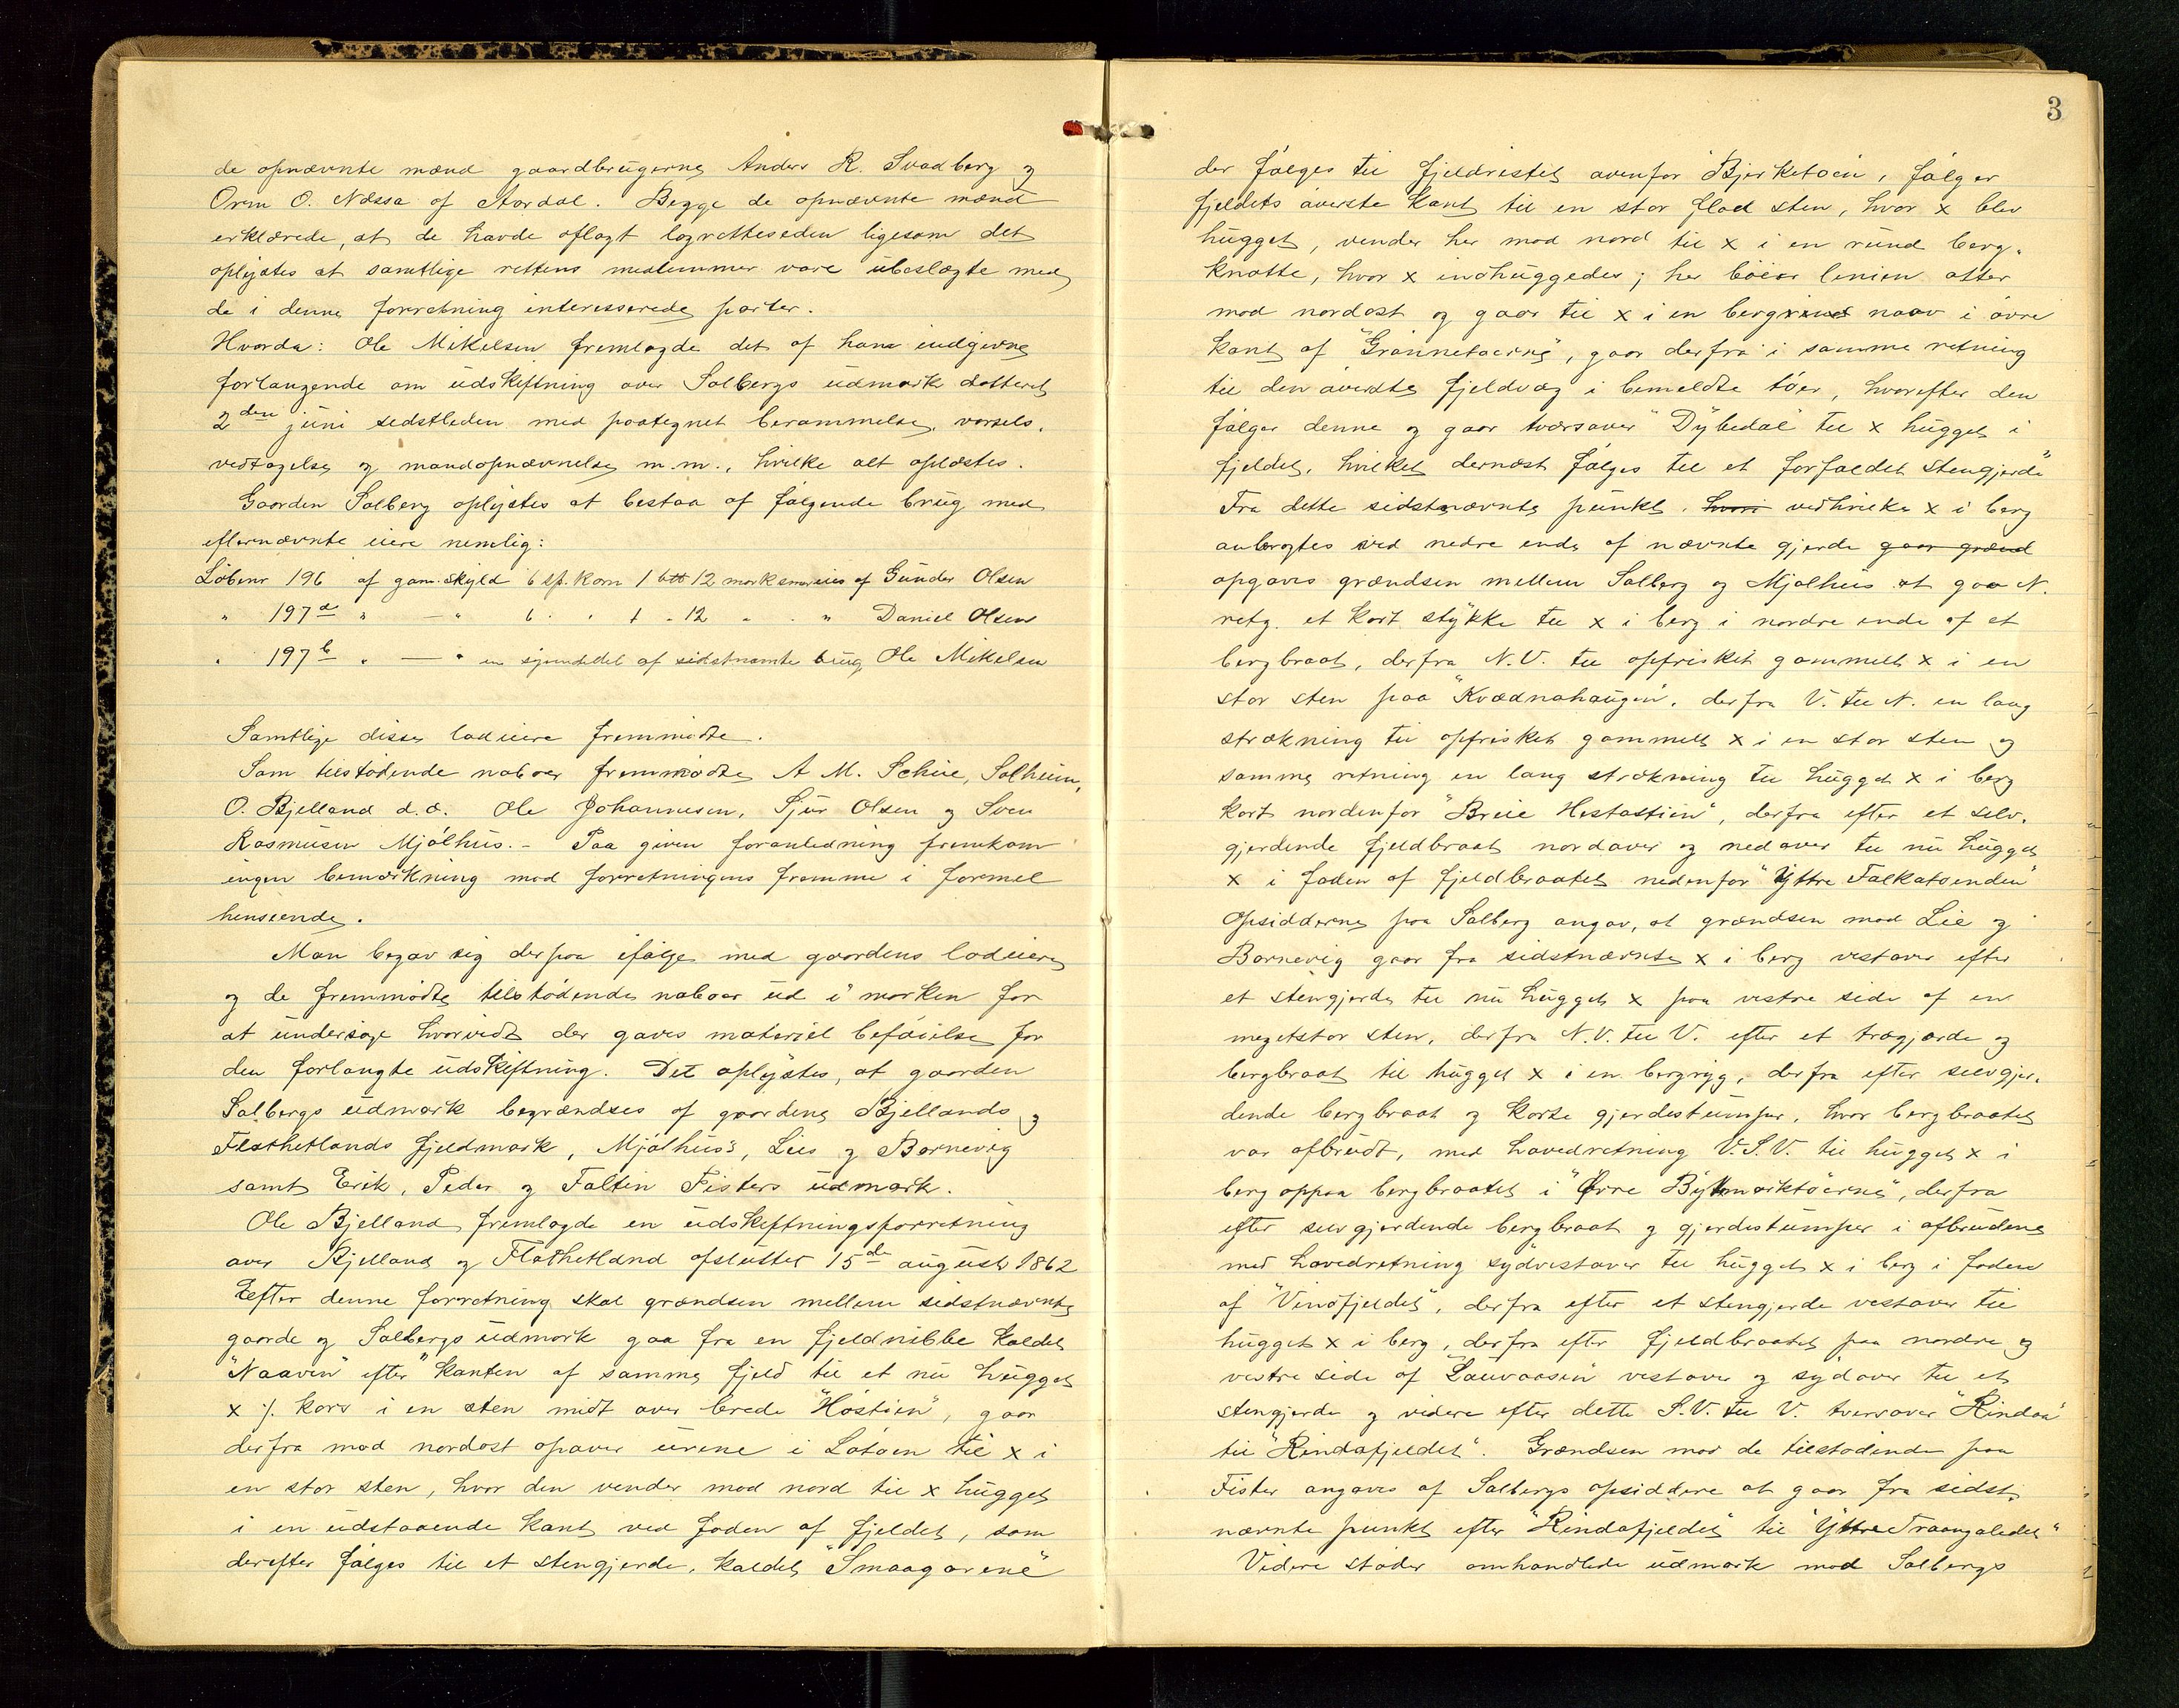 de opnævnte mænd gaardbrugerne Anders R. Svadberg og
Orm O. Nessa af Aardal. Begge de opnævnte mænd
erklærede, at de havde aflagt lagretteseden ligesom det
oplystes at samtlige rettens medlemmer vare ubeslægte med
de i denne forretning interesserede parter.
Hvorda: Ole Mikelsen fremlagde det af ham indgivne
forlangende om udskiftning over Solbergs udmark datteret
2den juni sidstleden med paategnet berammelse, varsels-
vedtagelse og mandopnævnelse m.m., hvilke alt oplæstes.
Gaarden Solberg oplystes at bestaa af følgende brug med
efternævnte eiere nemlig:
Löbenr 196 af gam. skyld 6 sp. korn 1 btt 12 mark smør eies af Gunder Olsen
" 197a " — " 6 " " 1 " 12 " " " Daniel Olsen
" 197b " — " en syvendedel af sidstnævnte brug Ole Mikelsen
Samtlige disse lodeiere fremmødte.
Som tilstødende naboer fremmødte A M. Schie, Solheim,
O. Bjelland d.æ. Ole Johannesen, Sjur Olsen og Sven
Rasmusen Mjølhus. - Paa given foranledning fremkom
ingen bemærkning mod forretningens fremme i formel
henseende.
Man begav sig derpaa ifølge med gaardens lodeiere
og de fremmødte tilstødende naboer ud i marken for
at undersøge hvorvidt der gaves materiel beføielse for
den forlangte udskiftning. Det oplystes, at gaarden
Solbergs udmark begrændses af gaardene Bjellands og
Flathetlands fjeldmark, Mjølhus's, Lies og Barnevig
samt Erik, Peder og Faltin Fisters udmark.
Ole Bjelland fremlagde en udskiftningsforretning
over Bjelland og Flathetland afsluttet 15de august 1862
Efter denne forretning skal grændsen mellem sidstnævnte
gaarde og Solbergs udmark gaa fra en fjeldnibbe kaldet
"Naaven" efter kanten af samme fjeld til et nu hugget
x ɔ: kors i en sten midt over brede "Høstien", gaar
derfra mod nordost opover urene i Løtoen til x i
en stor sten, hvor den vender mod nord til x hugget
i en udstaaende kant ved foden af fjeldet, som
derefter følges til et stengjerde, kaldet "Smaagarene"
3
der følges til fjeldristet ovenfor Bjerketoen, følger
fjeldets øverste kant til en stor flad sten, hvor x blev
hugget, vender her mod nord til x i en rund berg-
knatte, hvor x indhuggedes; her bøier linien atter
mod nordost og gaar til x i en bergrinds naav i øvre
kant af "Grønnetoerne", gaar derfra i samme retning
til den øverste fjeldvæg i bemeldte tøer, hvorefter den
følger denne og gaar tværsover "Dybedal" til x hugget i
fjeldet, hvilket dernæst følges til et forfaldet stengjerde
Fra dette sidstnævnte punkt, hvori ved hvilke x i berg
anbragtes ved nedre ende af nævnte gjerde gaar grænd
opgaves grændsen mellem Solberg og Mjølhus at gaa N.
retg. et kort stykke til x i berg i nordre ende af et
bergbraat, derfra N.V. til opfrisket gammelt x i en
stor sten paa "Kvædnahaugen", derfra V. til N. en lang
strækning til opfrisket gammelt x i en stor sten og
samme retning en lang strækning til hugget x i berg
kort nordenfor "Breie Hestastien", derfra efter et selv-
gjerdende fjeldbraat nordover og nedover til nu hugget
x i foden af fjeldbraatet nedenfor "Yttre Falkatoenden"
Opsidderne paa Solberg angav, at grændsen mod Lie og
Barnevig gaar fra sidstnævnte x i berg vestover efter
et stengjerde til nu hugget x paa vestre side af en
meget stor sten, derfra N.V. til V. efter et trægjærde og
bergbraat til hugget x i en bergryg, derfra efter selvgjer-
dende bergbraat og korte gjerdestumper, hvor bergbraatet
var afbrudt, med hovedretning V.S.V. til hugget x i
berg oppaa bergbraatet i "Øvre Bykmarktøerne", derfra
efter selvgjerdende bergbraat og gjerdestumper i afbrudene
med hovedretning sydvestover til hugget x i berg i foden
af "Vindfjeldet", derfra efter et stengjerde vestover til
hugget x i berg, derfra efter fjeldbraatet paa nordre og
vestre side af "Lauvaasen" vestover og sydover til et
stengjerde og videre efter dette S.V. til V. tversover "Rindaa"
til "Rindafjeldet". Grændsen mod de tilstødende paa
Fister angaves af Solbergs opsiddere at gaar fra sidst-
nævnte punkt efter "Rindafjeldet" til "Yttre Traangaledet"
Videre støder omhandlede udmark mod Solbergs